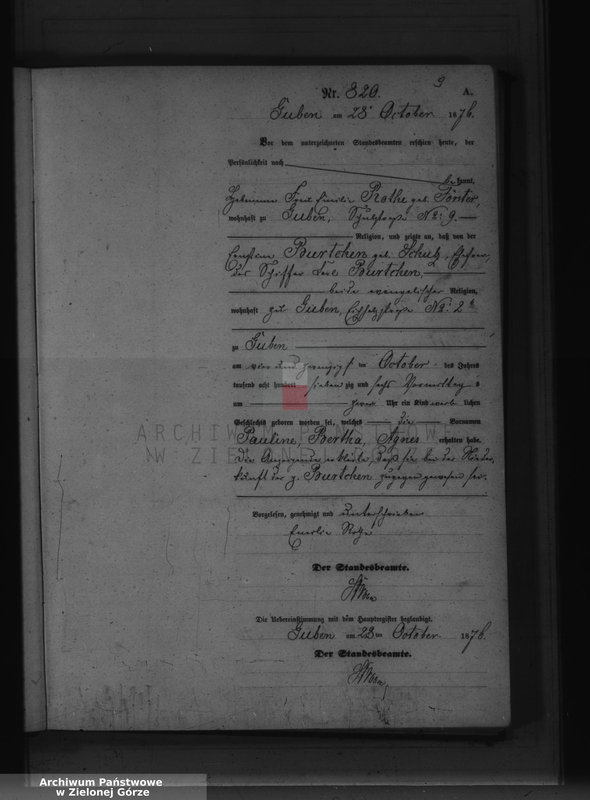 9
Nr. 820. A.
Guben am 28. October 1876.
Vor dem unterzeichneten Standesbeamten erschien heute, der
Persönlichkeit nach
bekannt,
Hebamme Frau Emilie Rothe geb. Förster,
wohnhaft zu Guben, No: 9.
Religion, und zeigte an, daß von der
Burtchen geb. Schulz, Ehefrau,
des Schiffer Carl Burtchen,
beide evangelischer Religion,
wohnhaft zu Guben, No: 2
zu Guben
am vier und zwanzigsten October des Jahres
tausend acht hundert sieben zig und sechs Vormittags
um zwei Uhr ein Kind weiblichen
Geschlechts geboren worden sei, welches die Vornamen
Pauline, Bertha, Agnes erhalten habe.
Die Anzeigende erklärte, daß sie bei der Nieder-
kunft der p. Burtchen zugegen gewesen sei.
Vorgelesen, genehmigt und unterschrieben
Emilie Rothe
Der Standesbeamte.
Die Uebereinstimmung mit dem Hauptregister beglaubigt.
Guben am 28ten October 1876.
Der Standesbeamte.
ARCHIWUM PAŃSTWOWE
W ZIELONEJ GÓRZE
Archiwum Państwowe
w Zielonej Górze